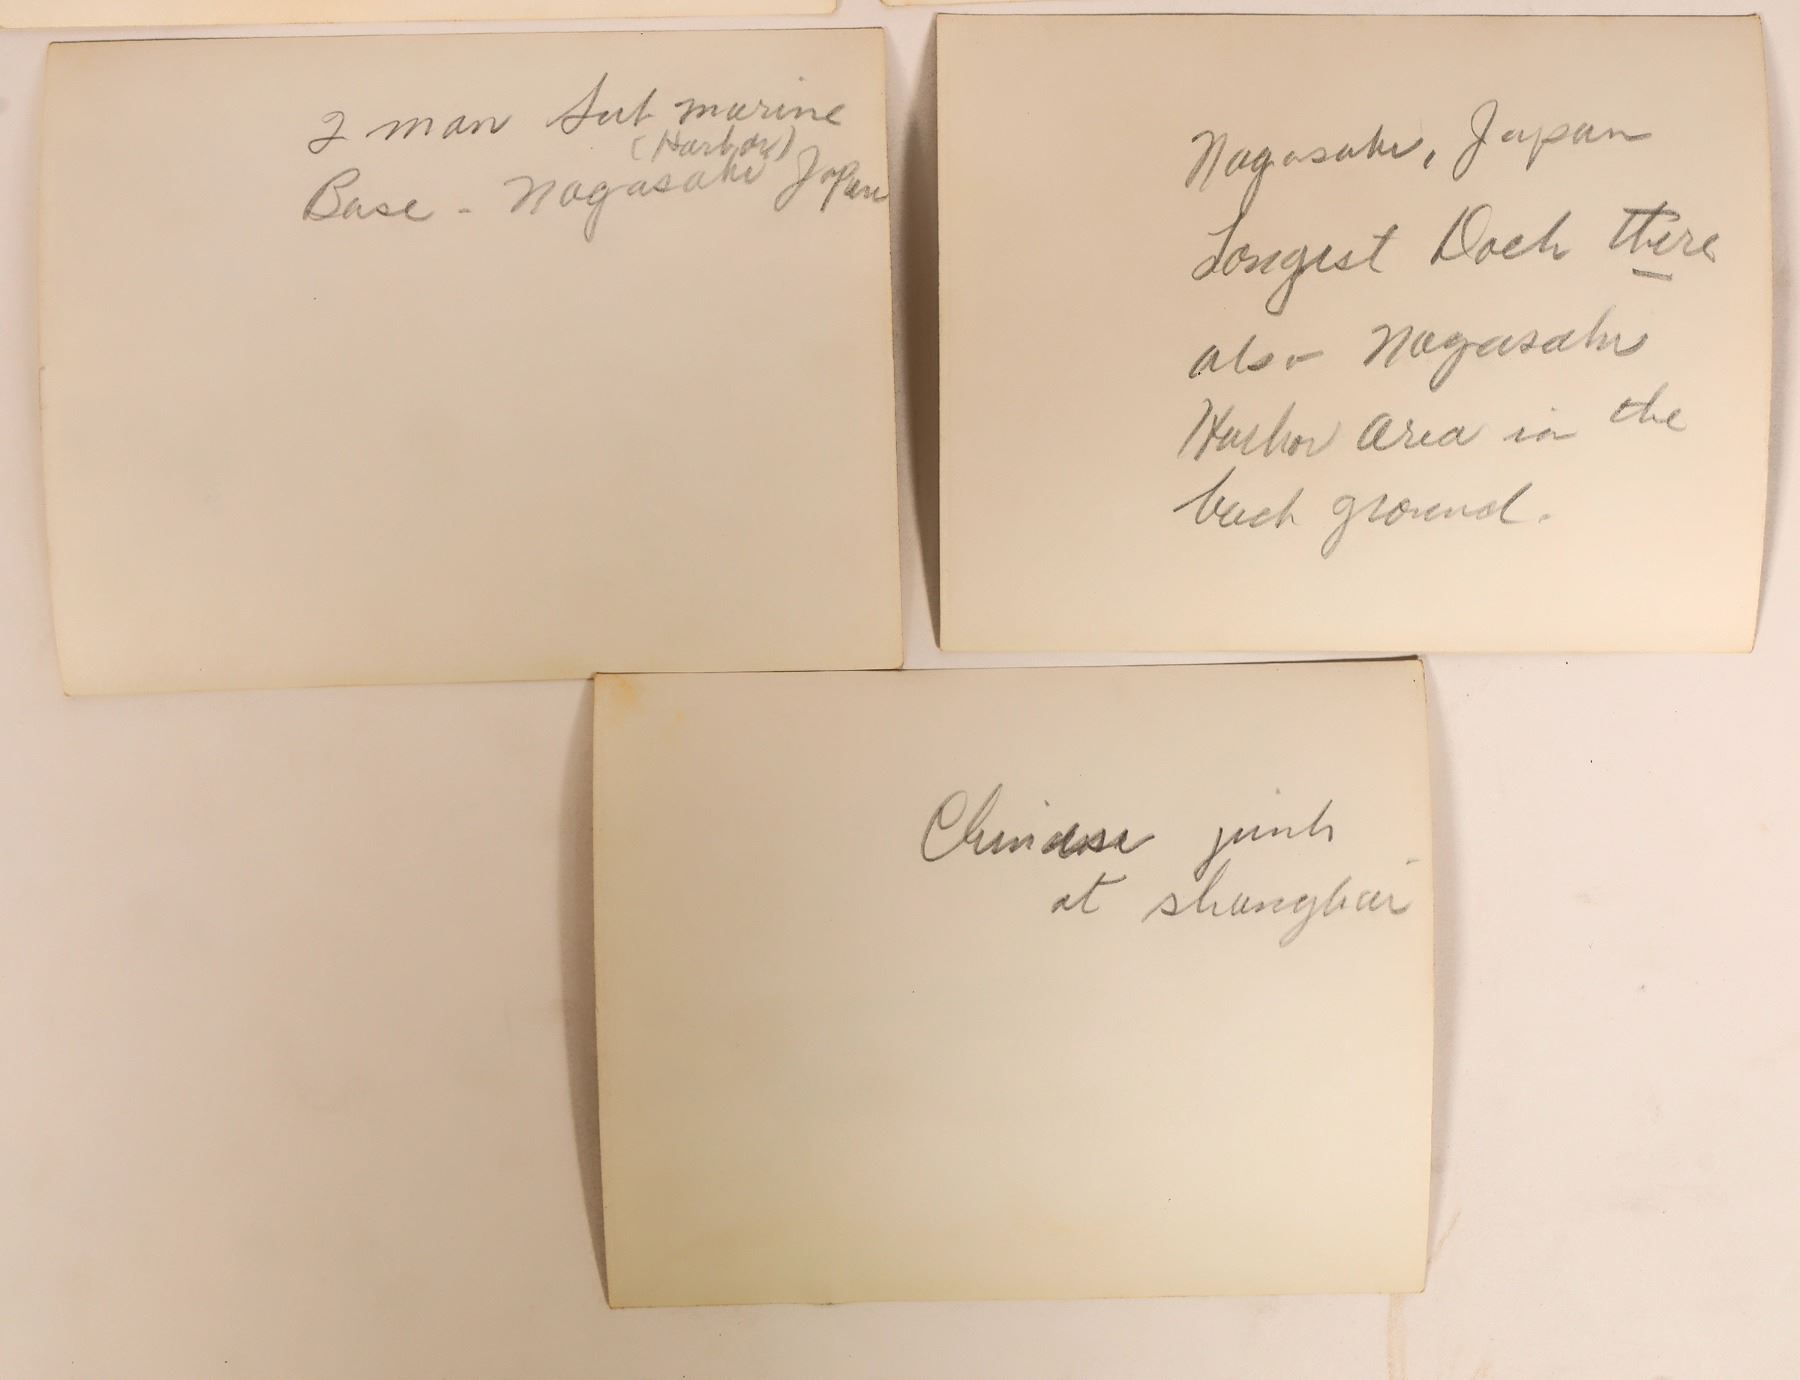 2 man Sub marine
(Harbor)
Base - Nagasaki Japan
Nagasaki, Japan
Longest Dock there
also Nagasaki
Harbor area in the
back ground.
Chinese junk
at shanghai